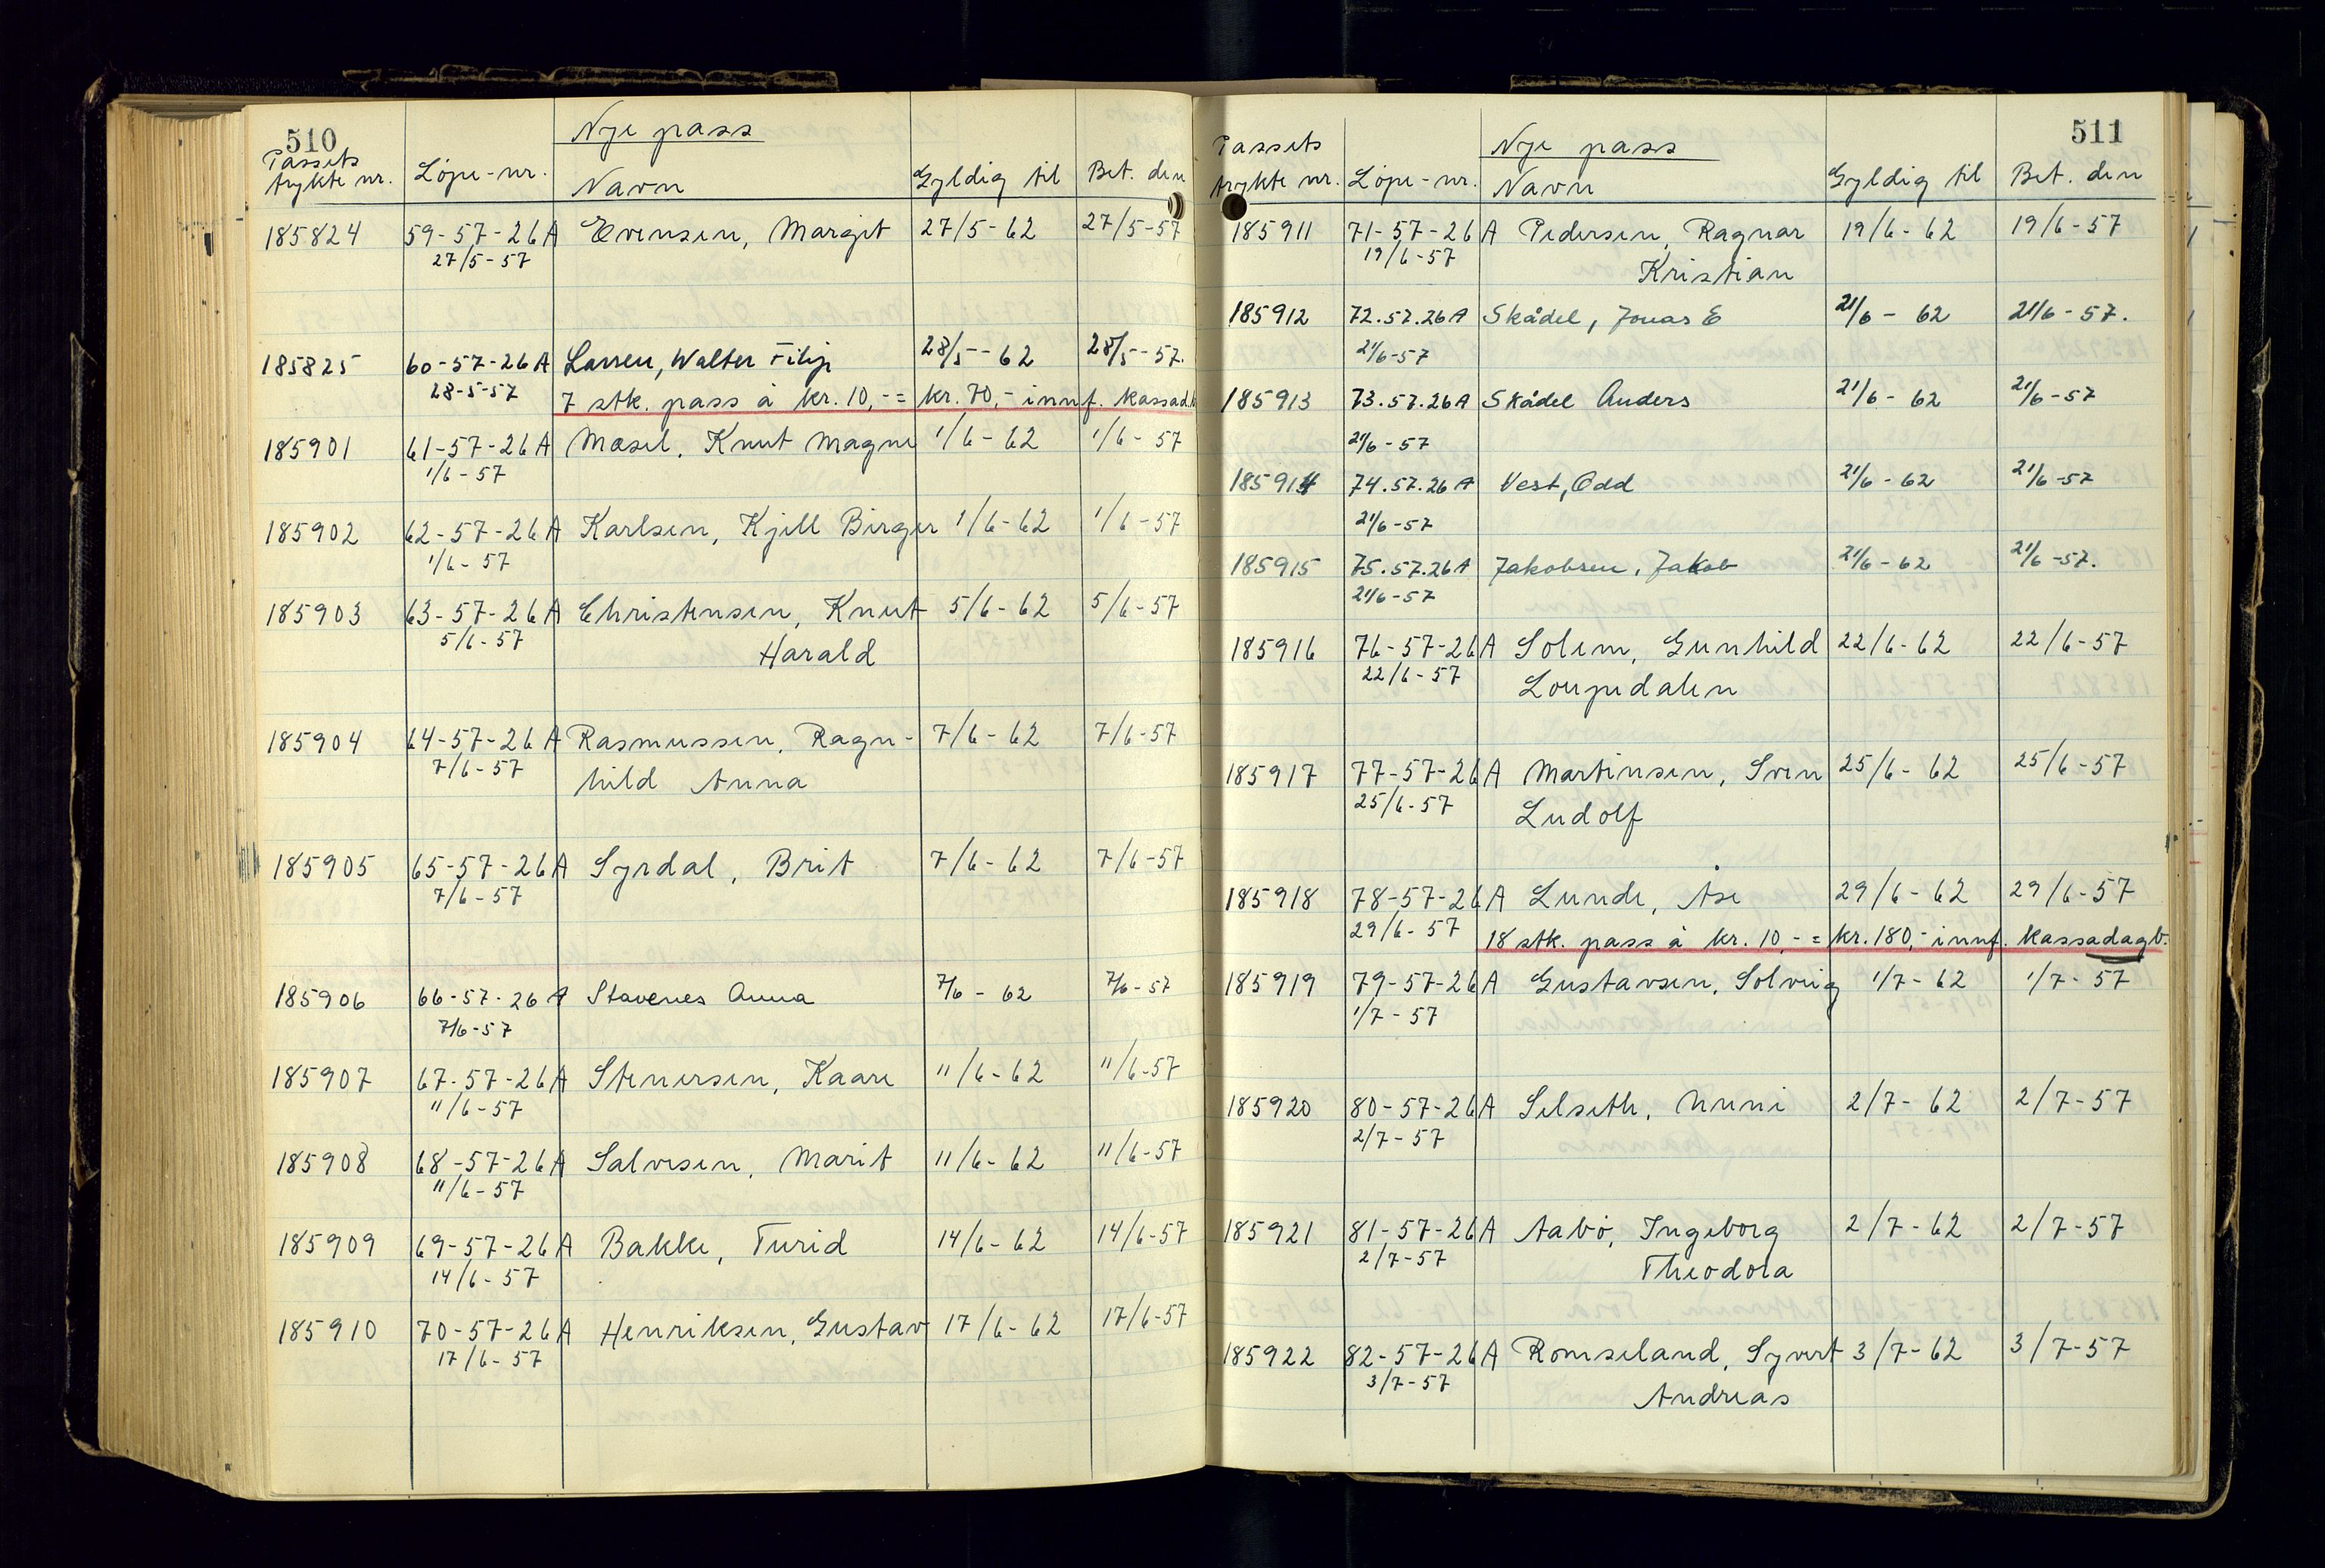 510
Nye pass
Passets
trykte nr. Löpe-nr. Navn Gyldig til Bet. den
185824 59-57-26A Evensen, Margit 27/5-62 27/5-57
27/5-57
185825 60-57-26A Larsen, Walter Filip 28/5-62 28/5-57.
28-5-57 7 stk. pass à kr. 10,- = kr. 70,- innf. kassad.
185901 61-57-26A Mosel, Knut Magne 1/6-62 1/6-57
1/6-57
185902 62-57-26A Karlsen, Kjell Birger 1/6-62 1/6-57
1/6-57
185903 63-57-26A Christensen, Knut 5/6-62 5/6-57
5/6-57 Harald
185904 64-57-26A Rasmussen, Ragn- 7/6-62 7/6-57
7/6-57 hild Anna
185905 65-57-26A Syrdal, Brit 7/6-62 7/6-57
7/6-57
185906 66-57-26A Stavenes Anna 7/6-62 7/6-57
7/6-57
185907 67-57-26A Stenersen, Kaare 11/6-62 11/6-57
11/6-57
185908 68-57-26A Salvesen, Marit 11/6-62 11/6-57
11/6-57
185909 69-57-26A Bakke, Turid 14/6-62 14/6-57
14/6-57
185910 70-57-26A Henriksen, Gustav 17/6-62 17/6-57
17/6-57
511
Passets Nye pass
trykte nr. Löpe-nr. Navn Gyldig til Bet. den
185911 71-57-26A Pedersen, Ragnar 19/6-62 19/6-57
19/6-57 Kristian
185912 72.57.26A Skådel, Jonas E 21/6-62 21/6-57.
21/6-57
185913 73.57.26A Skådel Anders 21/6-62 21/6-57
21/6-57
185914 74.57.26A Vest, Odd 21/6-62 21/6-57
21/6-57
185915 75.57.26A Jakobsen, Jakob 21/6-62 21/6-57.
21/6-57
185916 76-57-26A Solem, Gunhild 22/6-62 22/6-57
22/6-57 Loupedalen
185917 77-57-26A Martinsen, Sven 25/6-62 25/6-57
25/6-57 Ludolf
185918 78-57-26A Lunde, Åse 29/6-62 29/6-57
29/6-57 18 stk. pass à kr. 10,- = kr. 180,- innf. kassadagb.
185919 79-57-26A Gustavsen, Solveig 1/7-62 1/7-57
1/7-57
185920 80-57-26A Selseth, Nunni 2/7-62 2/7-57
2/7-57
185921 81-57-26A Aabö, Ingeborg 2/7-62 2/7-57
2/7-57 Theodora
185922 82-57-26A Romseland, Syvert 3/7-62 3/7-57
3/7-57 Andreas